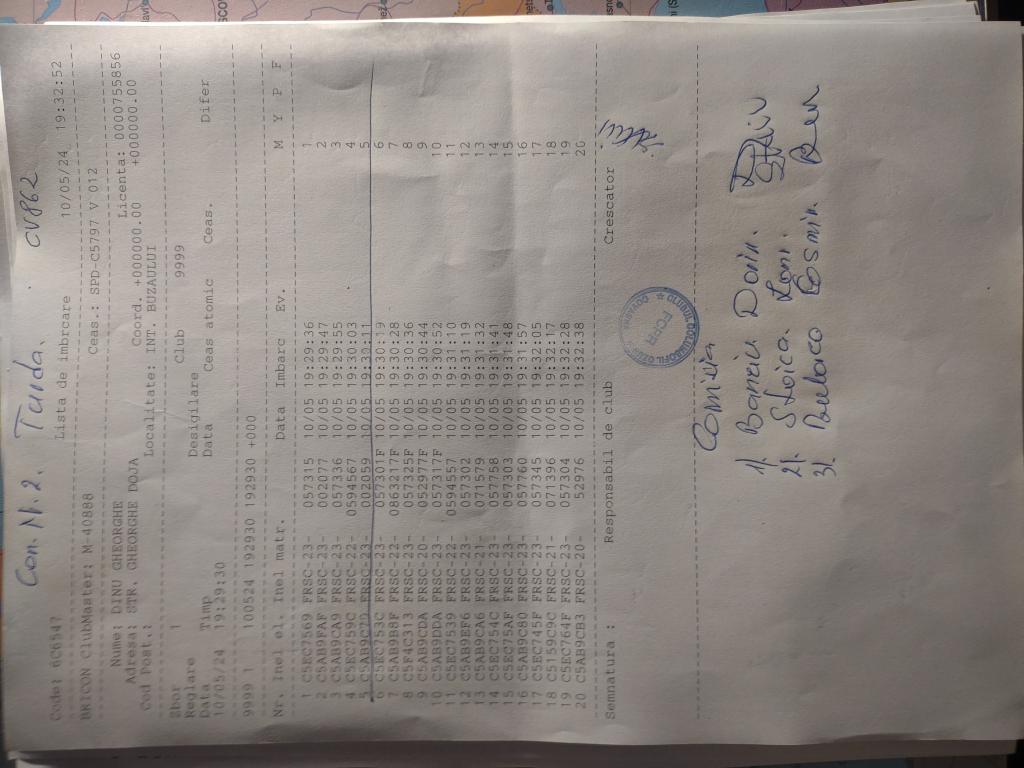 Con. Nr. 2. Turda. CV862
Code: 6C6547 Lista de imbrcare 10/05/24 19:32:52
BRICON ClubMaster: M-40888 Ceas.: SPD-C5797 V 012
Nume: DINU GHEORGHE Licenta: 0000755856
Adresa: STR. GHEORGHE DOJA Coord. +000000.00 +000000.00
Cod Post.: Localitate: INT. BUZAULUI
Zbor 1 Club 9999
Reglare Desigilare
Data Timp Data Ceas atomic Ceas. Difer
10/05/24 19:29:30
9999 1 100524 192930 192930 +000
Nr. Inel el. Inel matr. Data Imbarc Ev. M Y P F
1 C5EC7569 FRSC-23- 057315 10/05 19:29:36 1
2 C5AB9FAF FRSC-23- 002077 10/05 19:29:47 2
3 C5AB9CA9 FRSC-23- 057336 10/05 19:29:55 3
4 C5EC759C FRSC-22- 0594567 10/05 19:30:03 4
5 C5AB9C7D FRSC-23- 002059 10/05 19:30:11 5
6 C5EC753C FRSC-23- 057301F 10/05 19:30:19 6
7 C5AB9B8F FRSC-22- 0863217F 10/05 19:30:28 7
8 C5F4C313 FRSC-23- 057325F 10/05 19:30:36 8
9 C5AB9CDA FRSC-20- 052977F 10/05 19:30:44 9
10 C5AB9DDA FRSC-23- 057317F 10/05 19:30:52 10
11 C5EC7539 FRSC-22- 0594557 10/05 19:31:10 11
12 C5AB9EF6 FRSC-23- 057302 10/05 19:31:19 12
13 C5AB9CA6 FRSC-21- 071579 10/05 19:31:32 13
14 C5EC754C FRSC-23- 057758 10/05 19:31:41 14
15 C5EC75AF FRSC-23- 057303 10/05 19:31:48 15
16 C5AB9C80 FRSC-23- 057760 10/05 19:31:57 16
17 C5EC745F FRSC-23- 057345 10/05 19:32:05 17
18 C5159C9C FRSC-21- 071396 10/05 19:32:17 18
19 C5EC764F FRSC-23- 057304 10/05 19:32:28 19
20 C5AB9CB3 FRSC-20- 52976 10/05 19:32:38 20
Semnatura : Responsabil de club Crescator
FCPR
COVASNA
Comisia
1). Barciu Dorin.
2). Stoica Loni.
3). Bularca Cosmin.